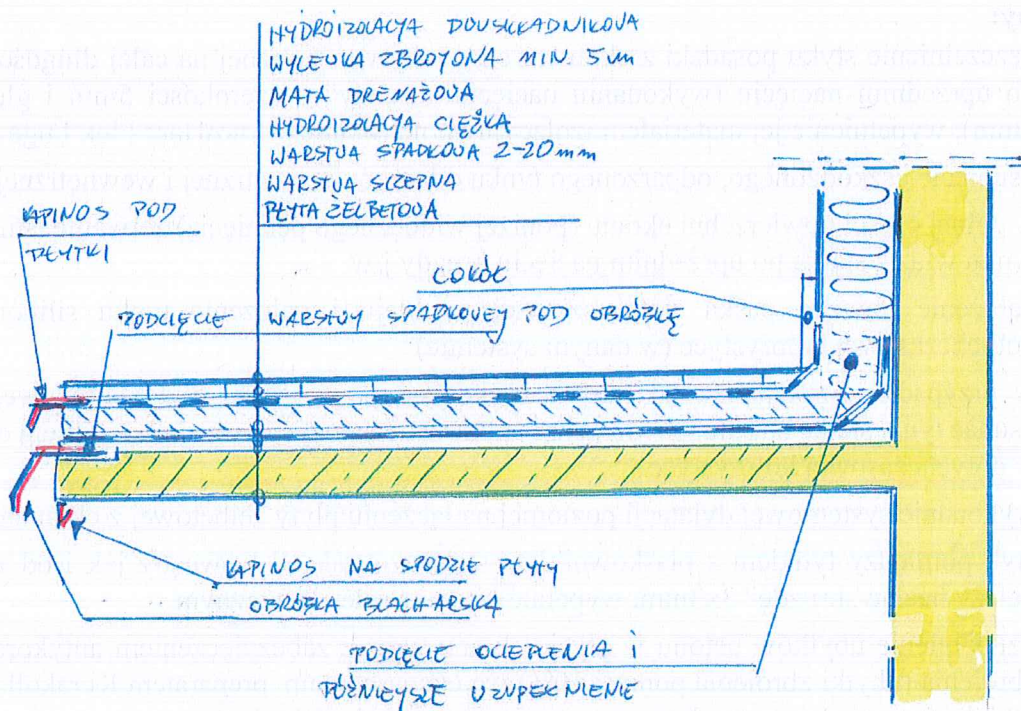 HYDROIZOLACJA DWUSKŁADNIKOWA
WYLEWKA ZBROJONA MIN 5cm
MATA DRENAŻOWA
HYDROIZOLACJA CIĘŻKA
WARSTWA SPADKOWA 2-20mm
WARSTWA SCZEPNA
PŁYTA ŻELBETOWA
KAPINOS POD
PŁYTKI
COKÓŁ
PODCIĘCIE WARSTWY SPADKOWEJ POD OBRÓBKĘ
KAPINOS NA SPODZIE PŁYTY
OBRÓBKA BLACHARSKA
PODCIĘCIE OCIEPLENIA i
PÓŹNIEJSZE UZUPEŁNIENIE